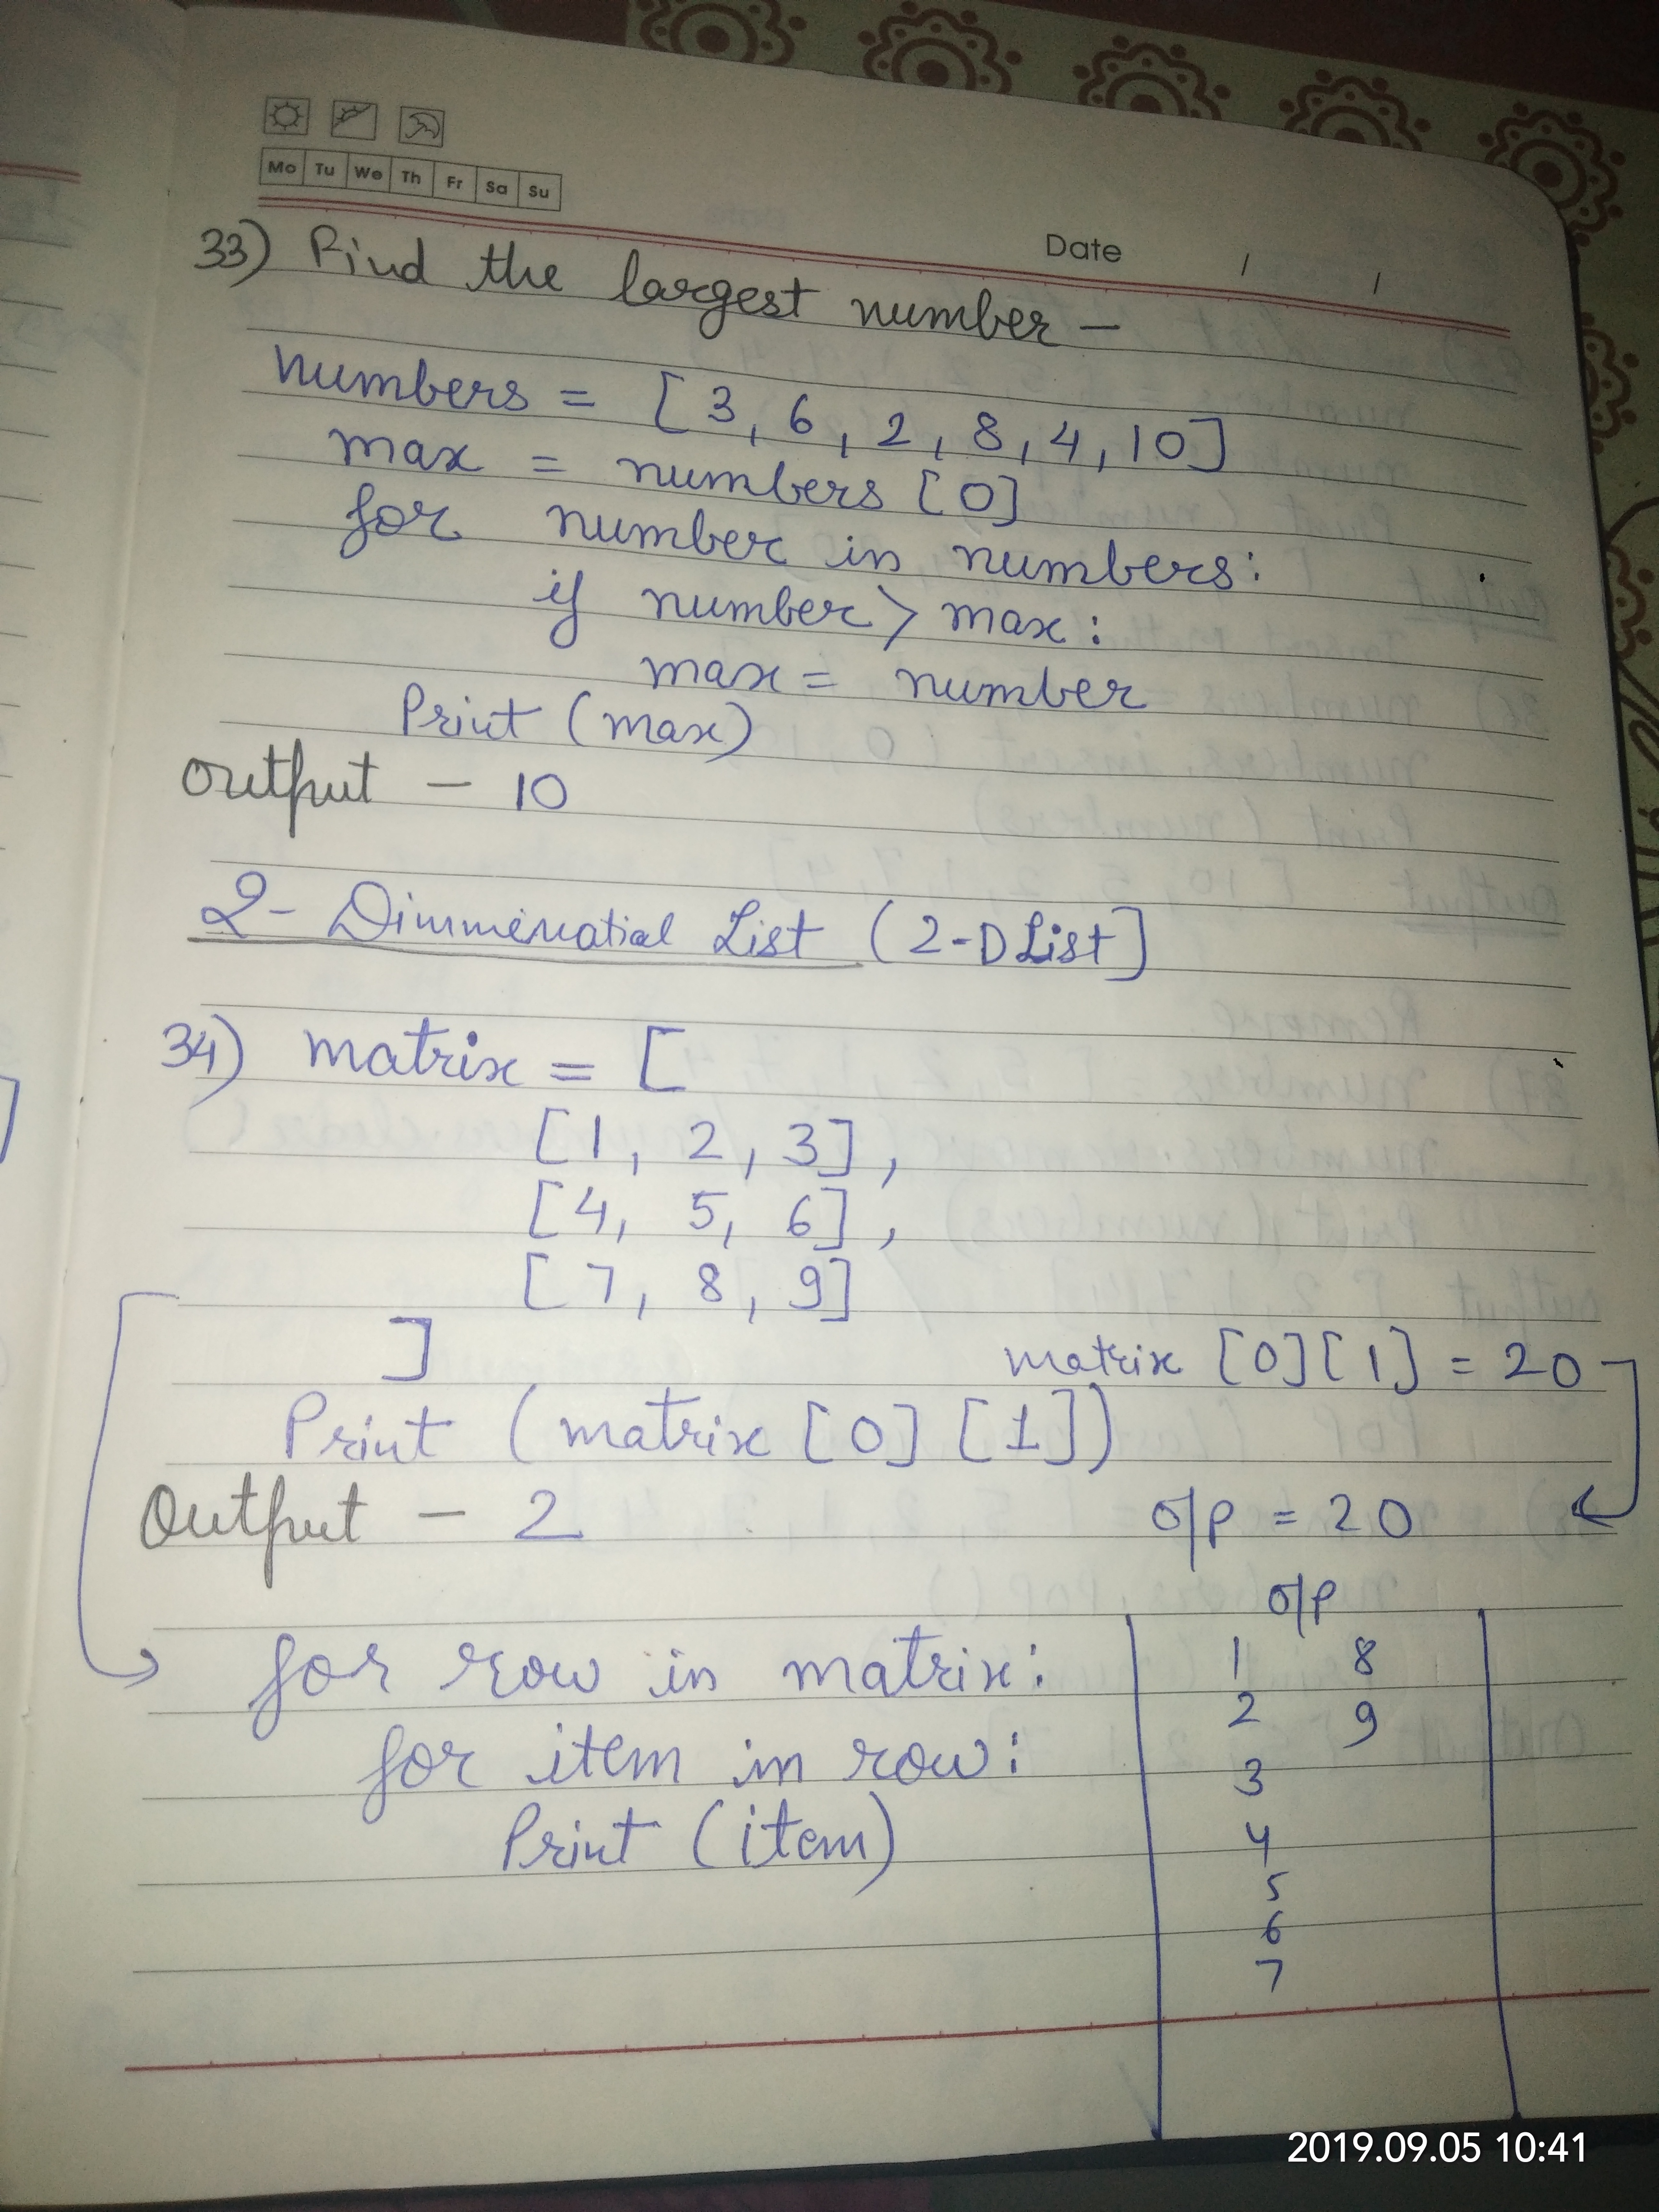 Mo Tu We Th Fr Sa Su
Date / /
33) Find the largest number –
numbers = [3, 6, 2, 8, 4, 10]
max = numbers [0]
for number in numbers:
if number > max:
max = number
Print (max)
output – 10
2- Dimmenatial List (2-D List]
34) matrix = [
[1, 2, 3],
[4, 5, 6],
[7, 8, 9]
]
matrix [0][1] = 20
Print (matrix [0] [1])
Output – 2
o/p = 20
for row in matrix:
for item in row:
Print (item)
o/p
1 8
2 9
3
4
5
6
7
2019.09.05 10:41